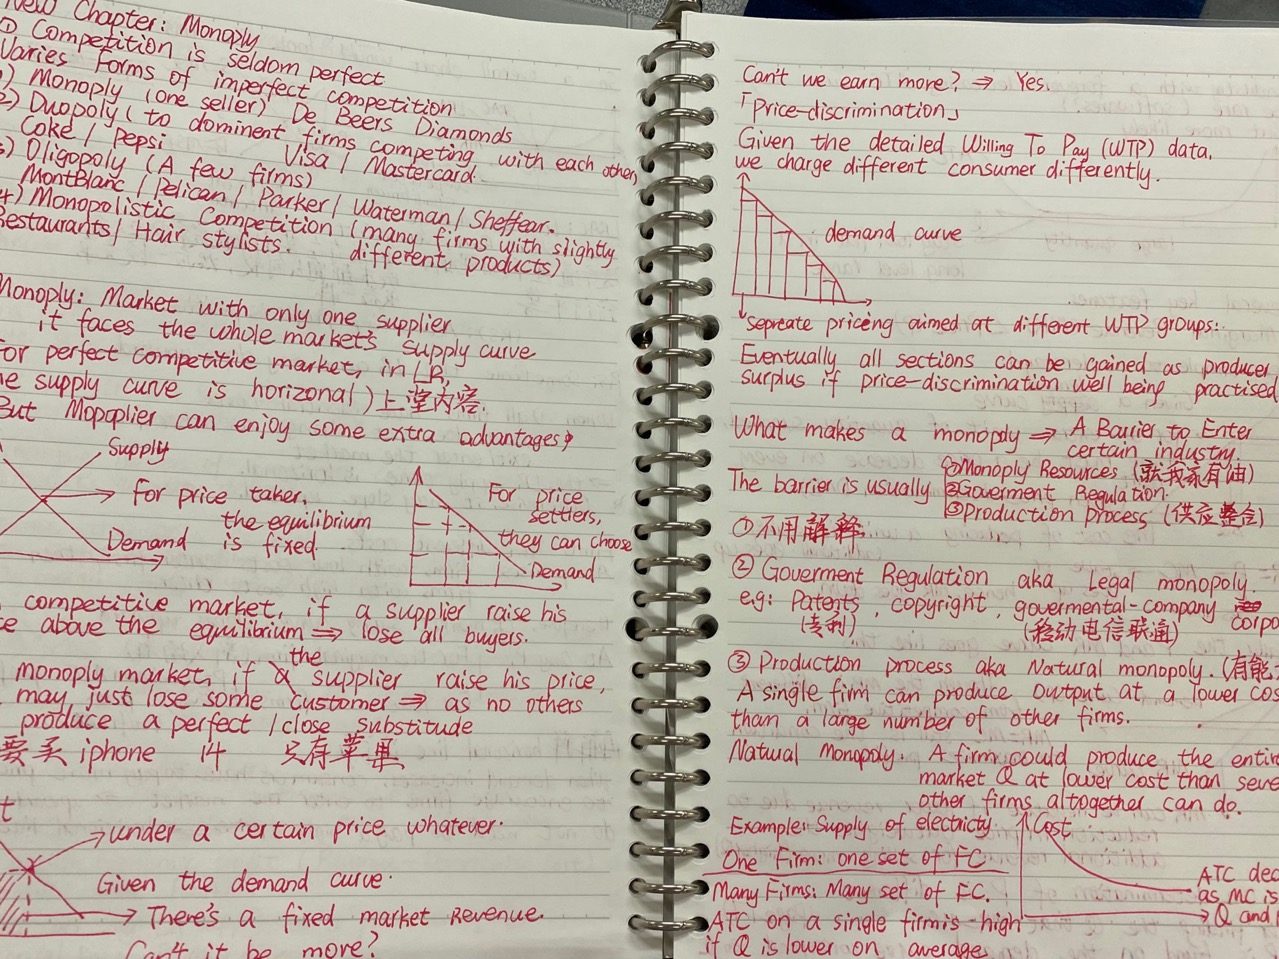 New Chapter: Monoply
① Competition is seldom perfect
Varies forms of imperfect competition
1) Monoply (one seller) De Beers Diamonds
2) Duopoly (to dominent firms competing with each other,
Coke / Pepsi Visa / Mastercard.
3) Oligopoly (A few firms)
MontBlanc / Pelican / Parker / Waterman / Sheffear.
4) Monopolistic Competition (many firms with slightly
Restaurants / Hair stylists. different products)
Monoply: Market with only one supplier
it faces the whole market's supply curve
for perfect competitive market, in LR,
supply curve is horizonal) 上堂内容.
But Mopoplier can enjoy some extra advantages,
Supply
for price taker,
the equilibrium
is fixed.
Demand
For price
settlers,
they can choose
Demand
competitive market, if a supplier raise his
above the equilibrium ⇒ lose all buyers.
monoply market, if the supplier raise his price,
may just lose some customer ⇒ as no others
produce a perfect / close substitude
要买 iphone 14 只有苹果
under a certain price whatever.
Given the demand curve.
There's a fixed market Revenue.
Can't it be more?
Can't we earn more? ⇒ Yes.
「Price-discrimination」
Given the detailed Willing To Pay (WTP) data,
we charge different consumer differently.
demand curve
Seprtate pricing aimed at different WTP groups:
Eventually all sections can be gained as producer
surplus if price-discrimination well being practised
What makes a monoply ⇒ A Barrier to Enter
certain industry.
The barrier is usually
①Monoply Resources (就我家有油)
②Goverment Regulation.
③Production process (供应整合)
①不用解释
② Goverment Regulation aka Legal monopoly
e.g: Patents, copyright, govermental-company
(专利) (移动电信联通)
③ Production process aka Natural monopoly. (有能
A single firm can produce output at a lower
than a large number of other firms.
Natural Monopoly. A firm could produce the
market Q at lower cost than
other firms altogether can do.
Example: Supply of electricty
One Firm: one set of FC
Many Firms: Many set of FC.
ATC on a single firm is high
if Q is lower on average
Cost
ATC
as MC is
Q